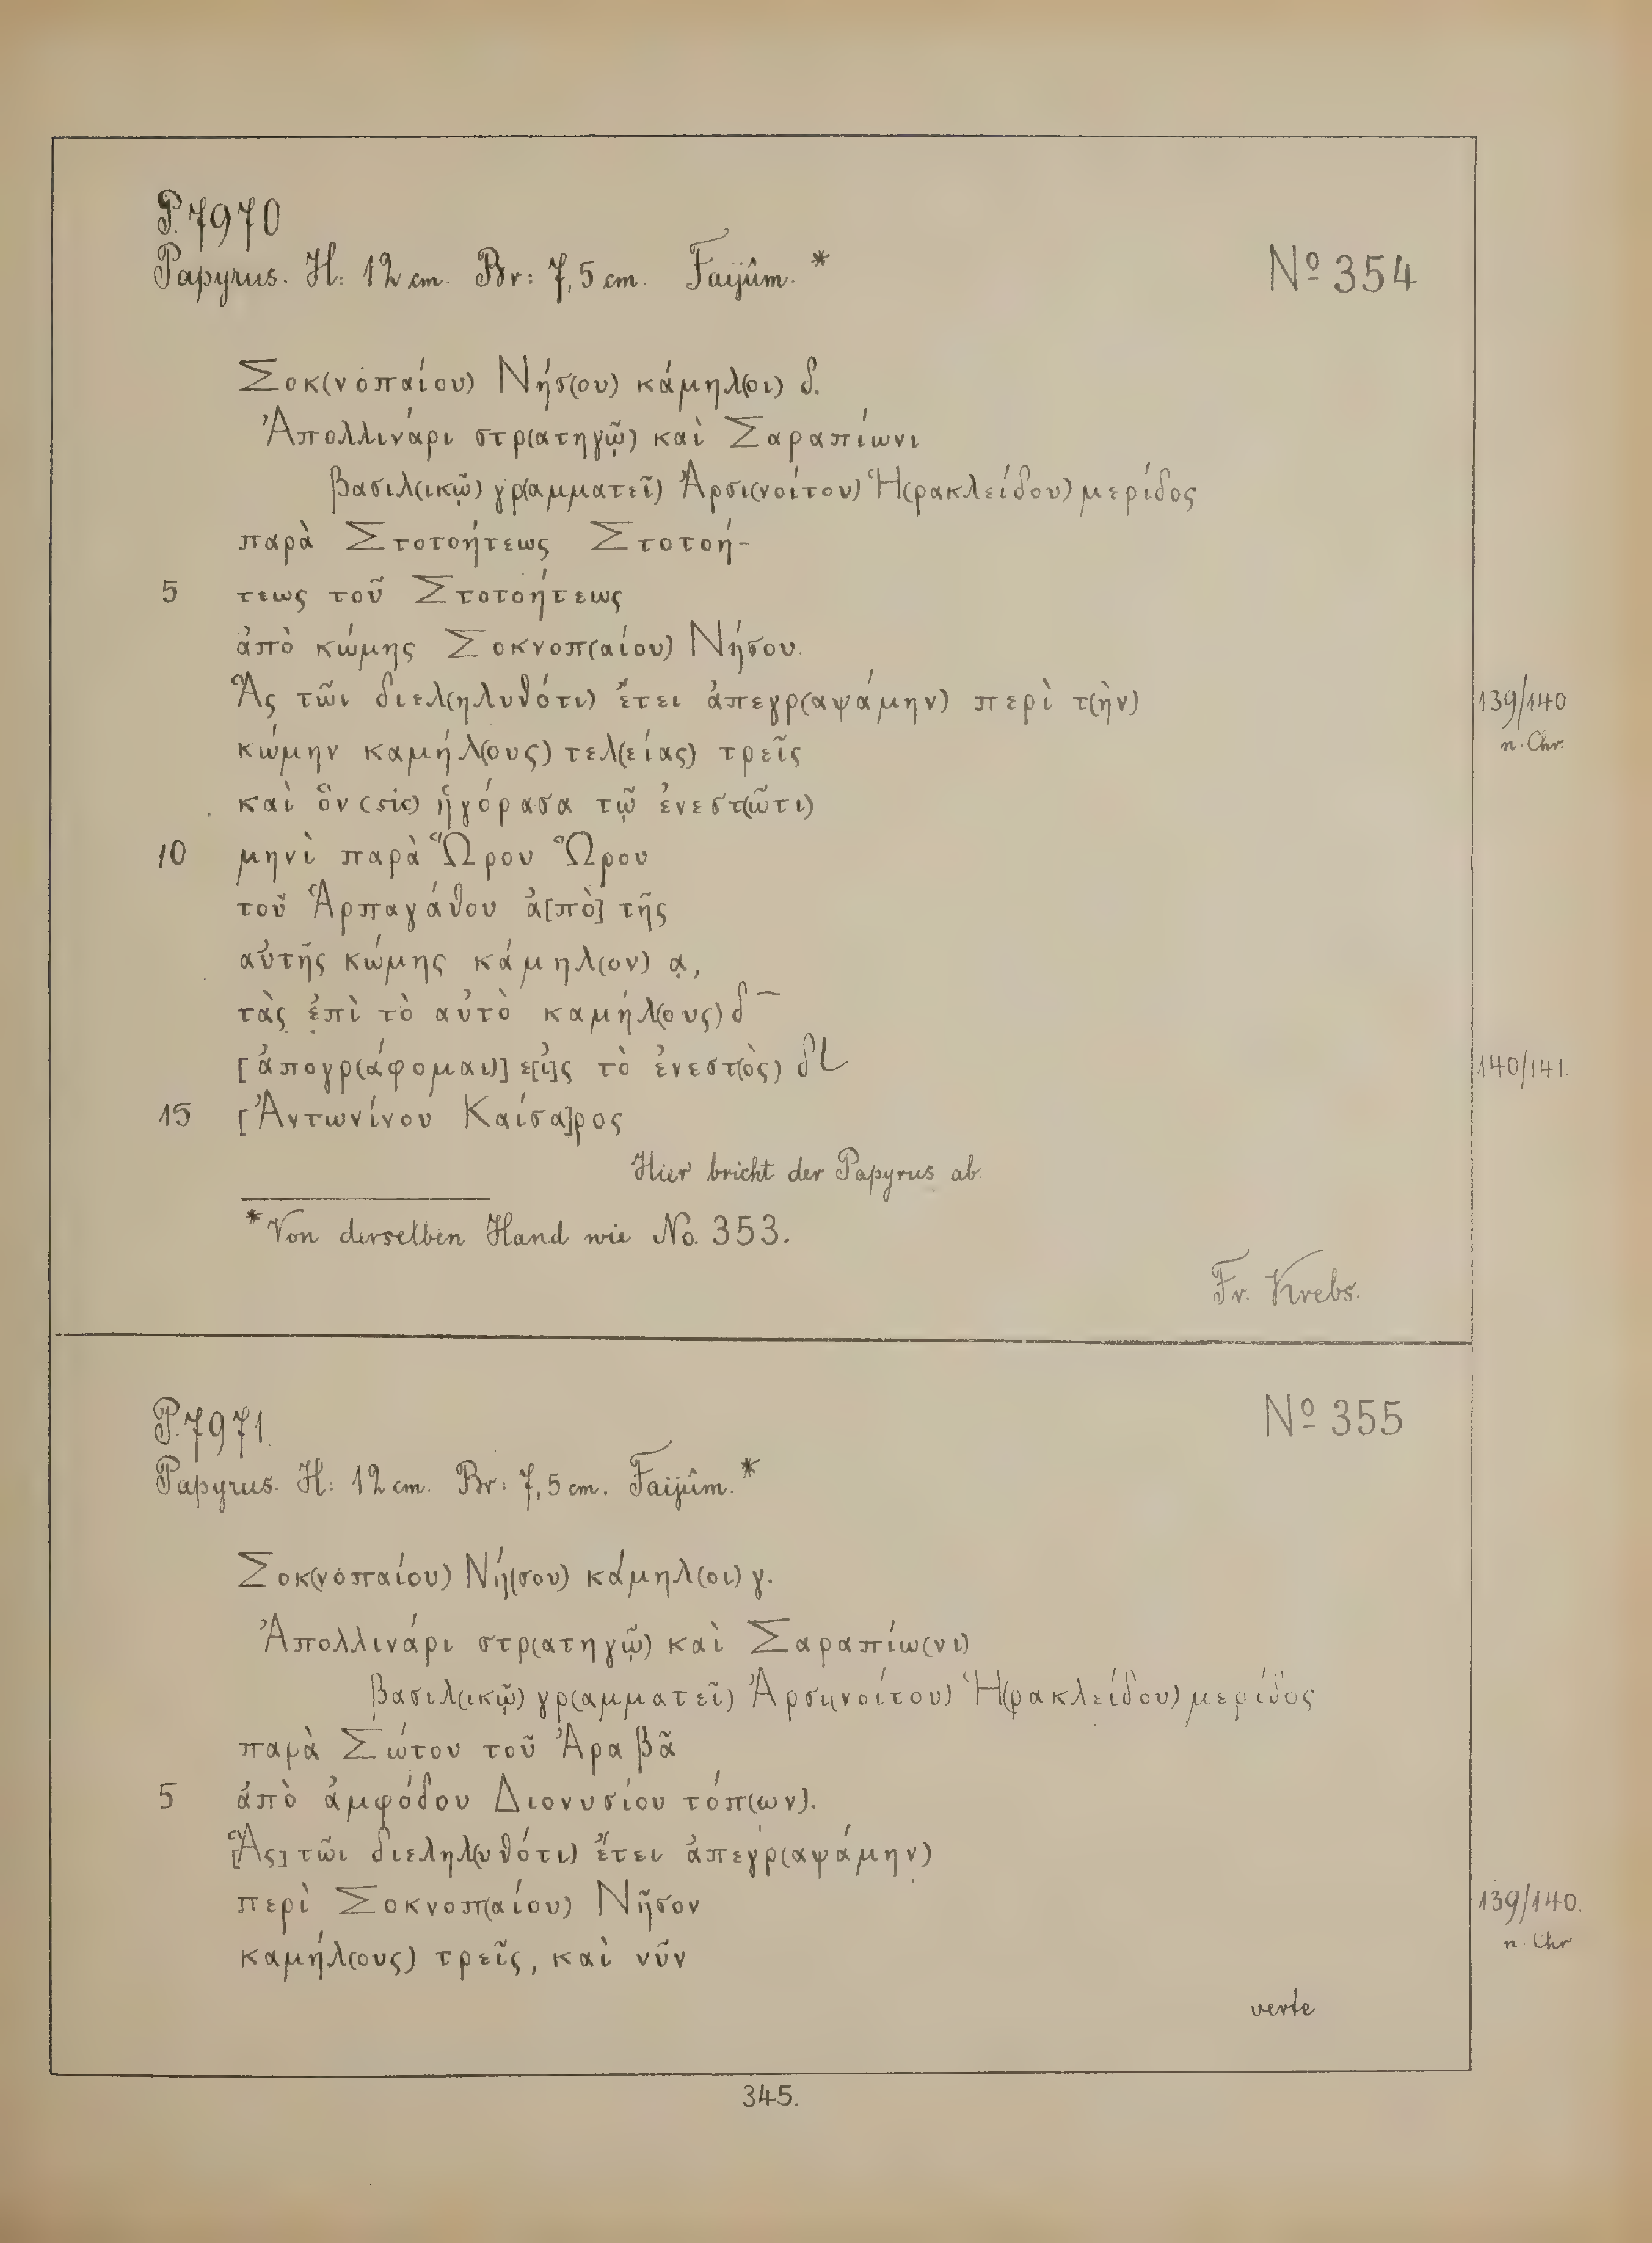 P. 7970
Papyrus. H: 12 cm. Br: 7,5 cm. Faijûm.*
No 354
Σοκ(νοπαίου) Νήσ(ου) κάμηλ(οι) δ.
Ἀπολλινάρι στρ(ατηγῷ) καὶ Σαραπίωνι
βασιλ(ικῷ) γρ(αμματεῖ) Ἀρσι(νοίτου) Ἡ(ρακλείδου) μερίδος
παρὰ Στοτοήτεως Στοτοή-
5 τεως τοῦ Στοτοήτεως
ἀπὸ κώμης Σοκνοπ(αίου) Νήσου.
Ἃς τῶι διελ(ηλυθότι) ἔτει ἀπεγρ(αψάμην) περὶ τ(ὴν)
139/140
n. Chr.
κώμην καμήλ(ους) τελ(είας) τρεῖς
καὶ ὃν (sic) ἠγόρασα τῷ ἐνεστ(ῶτι)
10 μηνὶ παρὰ Ὥρου Ὥρου
τοῦ Ἁρπαγάθου ἀ[πὸ] τῆς
αὐτῆς κώμης κάμηλ(ον) α̣,
τὰς ἐπὶ τὸ αὐτὸ καμήλ(ους) δ ̅
[ἀπογρ(άφομαι)] ε[ἰ]ς τὸ ἐνεστ(ὸς) δL
140/141.
15 [Ἀντωνίνου Καίσα]ρος
Hier bricht der Papyrus ab.
* Von derselben Hand wie No. 353.
Fr. Krebs.
P. 7971.
No 355
Papyrus. H: 12 cm. Br: 7,5 cm. Faijûm.*
Σοκ(νοπαίου) Νή(σου) κάμηλ(οι) γ.
Ἀπολλινάρι στρ(ατηγῷ) καὶ Σαραπίω(νι)
βασιλ(ικῷ) γρ(αμματεῖ) Ἀρσι(νοίτου) Ἡ(ρακλείδου) μερίδος
παρὰ Σώτου τοῦ Ἀραβᾶ
5 ἀπὸ ἀμφόδου Διονυσίου τόπ(ων).
[Ἃς] τῶι διεληλ(υθότι) ἔτει ἀπεγρ(αψάμην)
περὶ Σοκνοπ(αίου) Νῆσον
139/140.
n. Chr
καμήλ(ους) τρεῖς, καὶ νῦν
verte
345.